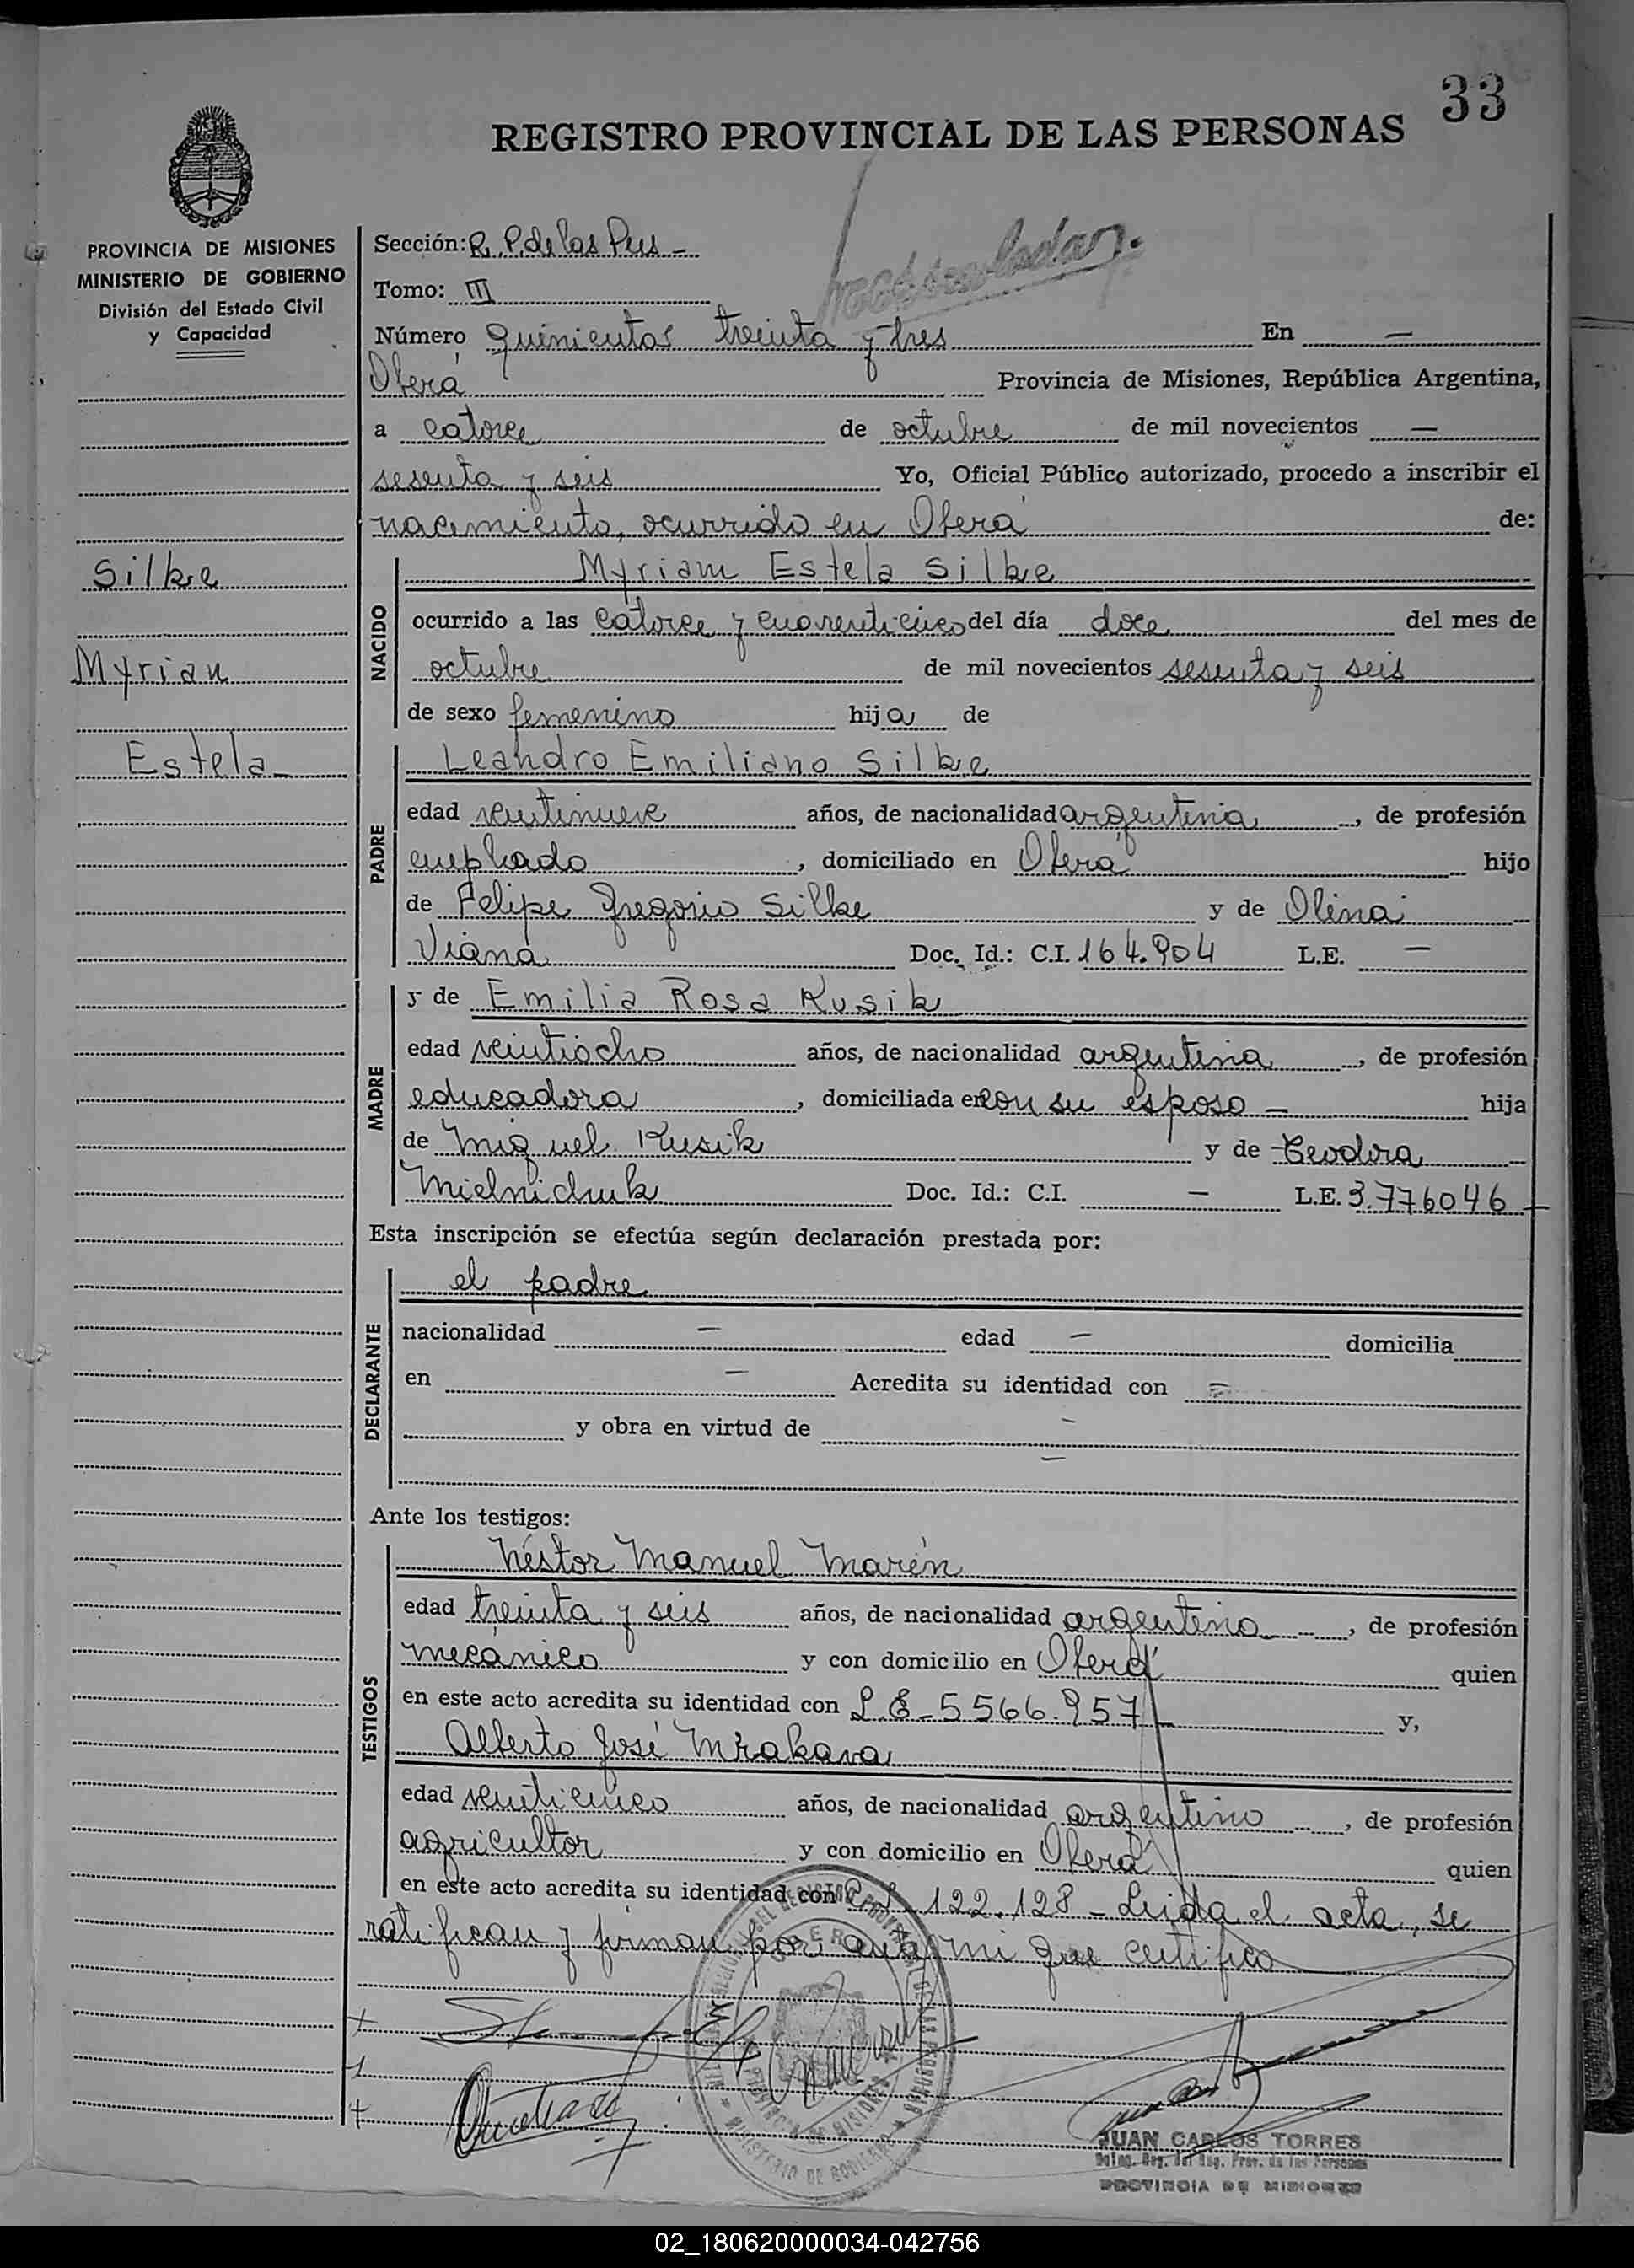 33
REGISTRO PROVINCIAL DE LAS PERSONAS
PROVINCIA DE MISIONES
MINISTERIO DE GOBIERNO
División del Estado Civil
y Capacidad
Silke
Myrian
Estela
Sección: R. P. de las Pers -
Tomo: III
Número quinientos treinta y tres En —
Oberá Provincia de Misiones, República Argentina,
a catorce de octubre de mil novecientos —
sesenta y seis Yo, Oficial Público autorizado, procedo a inscribir el
nacimiento, ocurrido en Oberá de:
NACIDO
Myriam Estela Silke
ocurrido a las catorce y cuarenticinco del día doce del mes de
octubre de mil novecientos sesenta y seis
de sexo femenino hija de
PADRE
Leandro Emiliano Silke
edad veintinueve años, de nacionalidad argentina, de profesión
empleado, domiciliado en Oberá hijo
de Felipe Gregorio Silke y de Olina
Viana Doc. Id.: C.I. 164.904 L.E. —
MADRE
y de Emilia Rosa Kusik
edad veintiocho años, de nacionalidad argentina, de profesión
educadora, domiciliada en con su esposo — hija
de Miguel Kusik y de Teodora
Mielnichuk Doc. Id.: C.I. — L.E. 3.776046 -
Esta inscripción se efectúa según declaración prestada por:
DECLARANTE
el padre
nacionalidad — edad — domicilia
en — Acredita su identidad con =
y obra en virtud de —
—
Ante los testigos:
TESTIGOS
Néstor Manuel Marén
edad treinta y seis años, de nacionalidad argentino, de profesión
mecánico y con domicilio en Oberá quien
en este acto acredita su identidad con L.E. 5566.957 y,
Alberto José
edad veinticinco años, de nacionalidad argentino, de profesión
agricultor y con domicilio en Oberá quien
en este acto acredita su identidad con 122.128 - Leida el acta, se
ratifican y firman por ante mi que certifico
JUAN CARLOS TORRES
PROVINCIA DE MISIONES
02_180620000034-042756